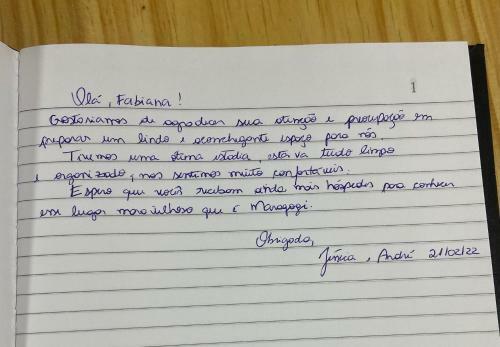 1
Olá, Fabiana!
Gostaríamos de agradecer sua atenção e preocupação em
preparar um lindo e aconchegante espaço para nós.
Tivemos uma ótima estadia, estava tudo limpo
e organizado, nos sentimos muito confortáveis.
Espero que vocês recebam ainda mais hóspedes para conhecer
esse lugar maravilhoso que é Maragogi.
Obrigada,
Jéssica, André 21/02/22